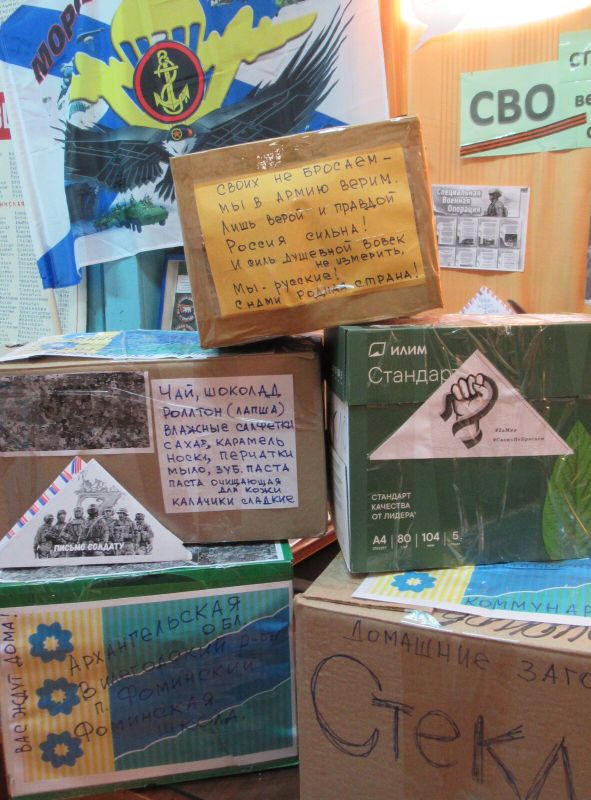 МОРС
СВО
СП
ве
Специальная
Военная
Операция
СВОИХ НЕ БРОСАЕМ –
МЫ В АРМИЮ ВЕРИМ.
ЛИШЬ ВЕРОЙ И ПРАВДОЙ
РОССИЯ СИЛЬНА!
И СИЛЬ ДУШЕВНОЙ ВОВЕК
НЕ ИЗМЕРИТЬ,
МЫ - РУССКИЕ!
С НАМИ РОДНАЯ СТРАНА!
ЧАЙ, ШОКОЛАД
РОЛЛТОН (ЛАПША)
ВЛАЖНЫЕ САЛФЕТКИ
САХАР, КАРАМЕЛЬ
НОСКИ, ПЕРЧАТКИ
МЫЛО, ЗУБ. ПАСТА
ПАСТА ОЧИЩАЮЩАЯ
ДЛЯ КОЖИ
КАЛАЧИКИ СЛАДКИЕ
ПИСЬМО СОЛДАТУ
ИЛИМ
Стандар
#ZаМир
#СвоихНеБросаем
СТАНДАРТ
КАЧЕСТВА
ОТ ЛИДЕРА
А4 80 104 5
ВАС ЖДУТ ДОМА!
АРХАНГЕЛЬСКАЯ
ОБЛ.
ВИЛЕГОДСКИЙ Р-ОН
П. ФОМИНСКИЙ
ФОМИНСКАЯ
ШКОЛА.
КОММУНАР
ДОМАШНИЕ ЗАГО
СТЕКЛ